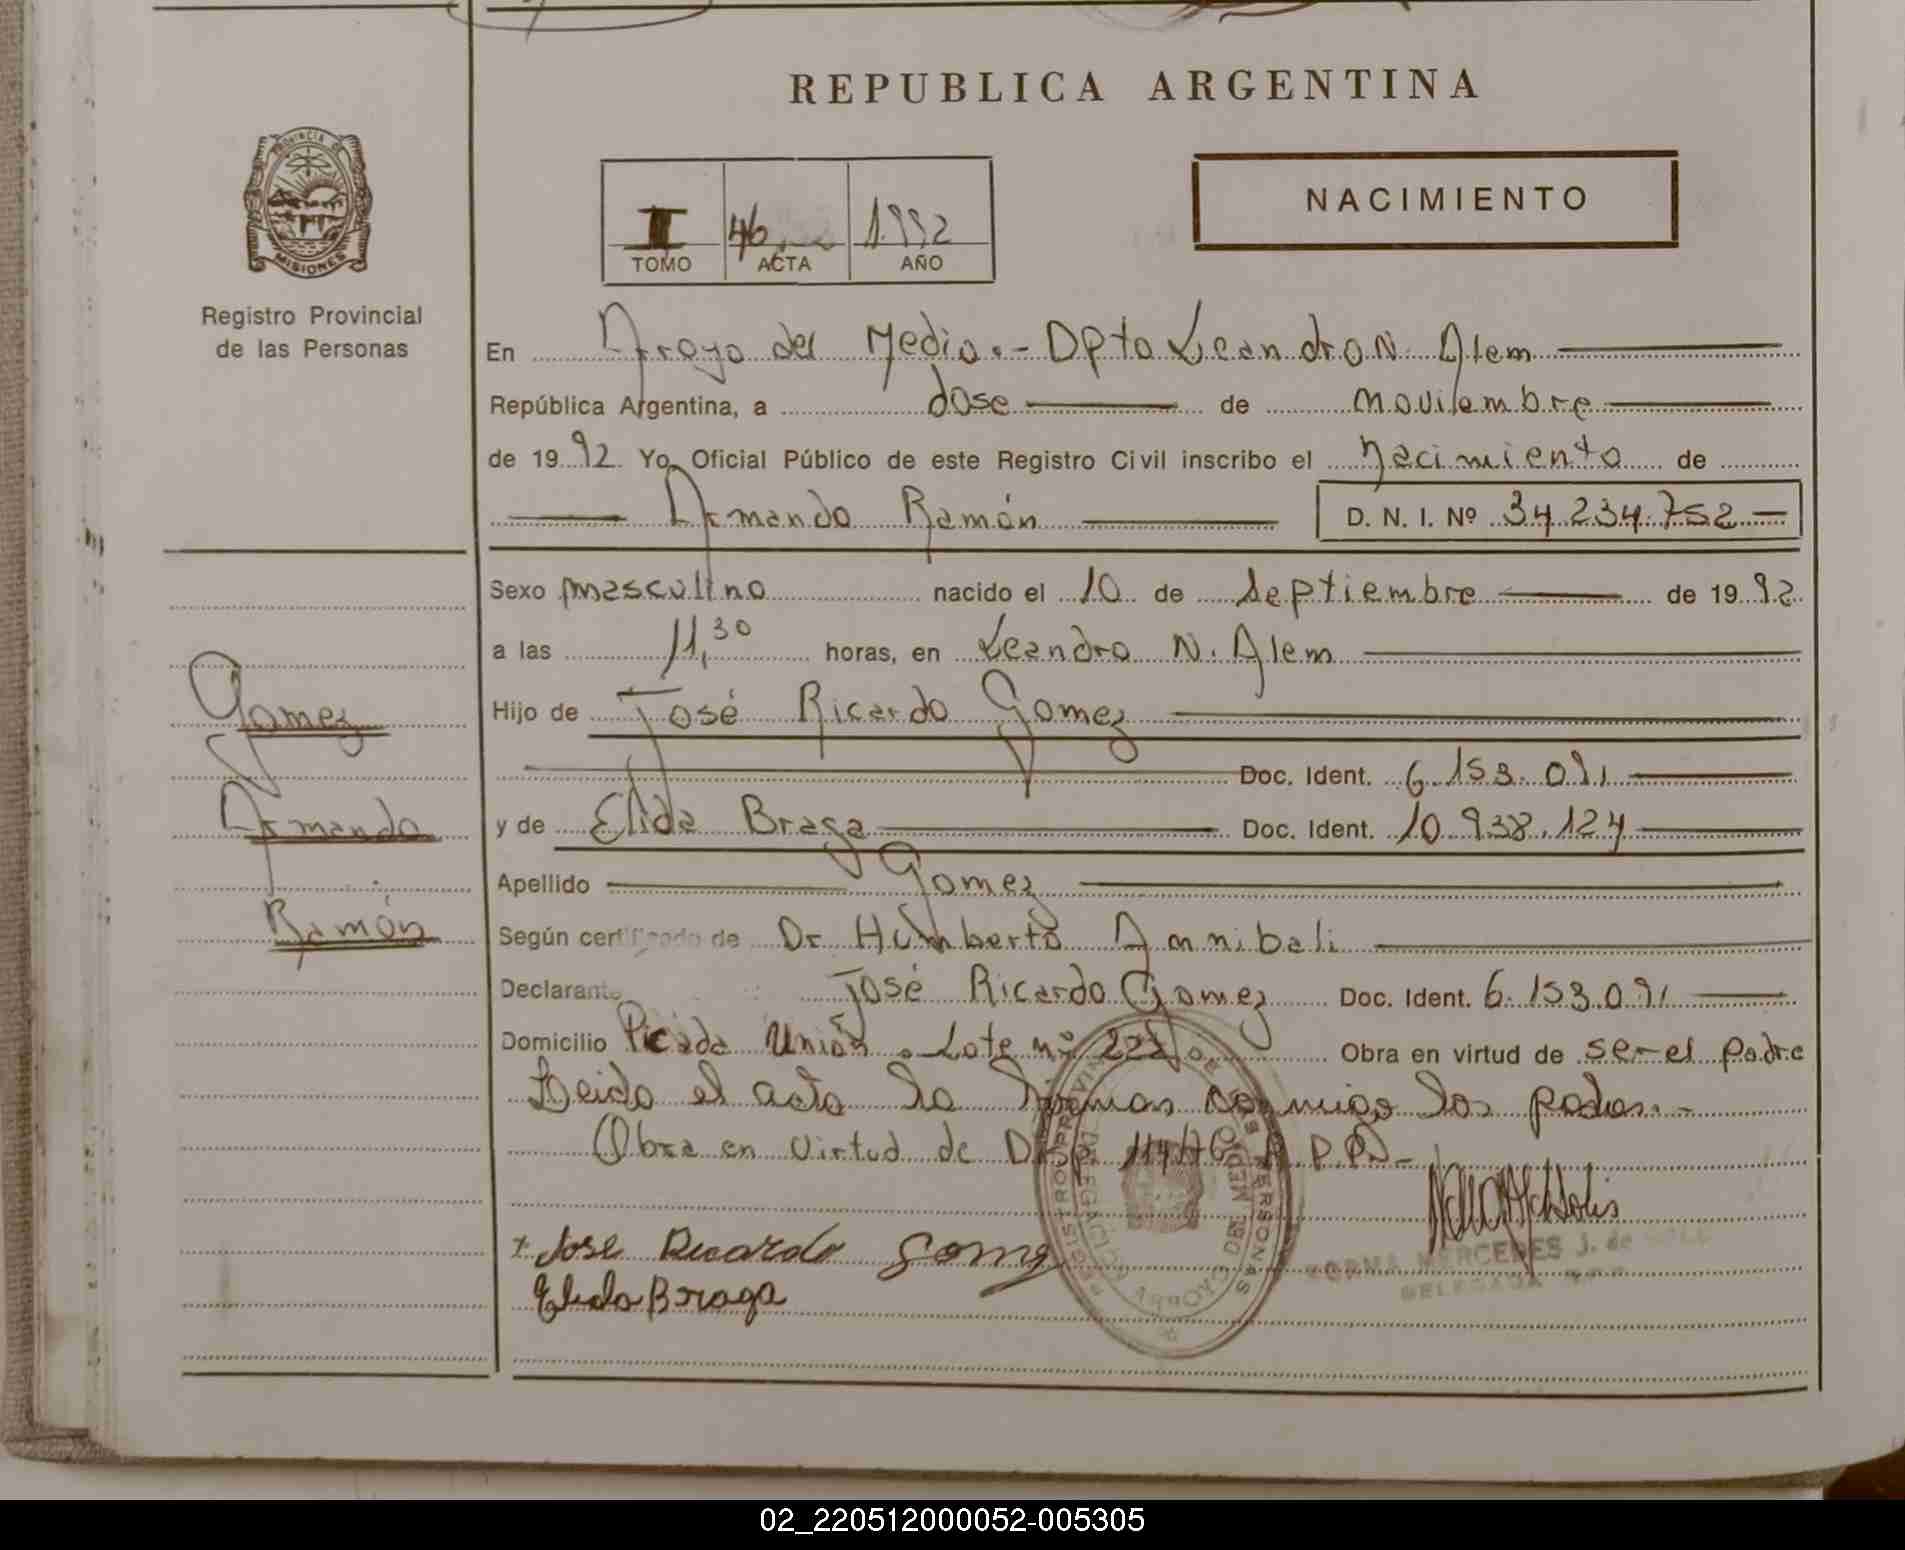 REPUBLICA ARGENTINA
PROVINCIA DE
MISIONES
Registro Provincial
de las Personas
I 46 1.992
TOMO ACTA AÑO
NACIMIENTO
En Arroyo del Medio.- Dpto Leandro N. Alem
República Argentina, a dose de noviembre
de 1992 Yo, Oficial Público de este Registro Civil inscribo el Nacimiento de
Armando Ramón D. N. I. Nº 34.234.752
Sexo masculino nacido el 10 de Septiembre de 1992
a las 11,30 horas, en Leandro N. Alem
Hijo de José Ricardo Gomez
Doc. Ident. 6.153.091
y de Elida Braga Doc. Ident. 10.938.124
Apellido Gomez
Según certificado de Dr Humberto Annibali
Declarante José Ricardo Gomez Doc. Ident. 6.153.091
Domicilio Picada Unión. Lote nº Obra en virtud de ser el padre
Leido el acta la firman conmigo los padres.-
Obra en virtud de Disp. R.P.P.-
Gomez
Armando
Ramón
José Ricardo Gomez
Elida Braga
REGISTRO PROVINCIAL DE LAS PERSONAS
DELEGACION ARROYO DEL MEDIO
NORMA MERCEDES J. de SOLI
DELEGADA R.P.P.
02_220512000052-005305